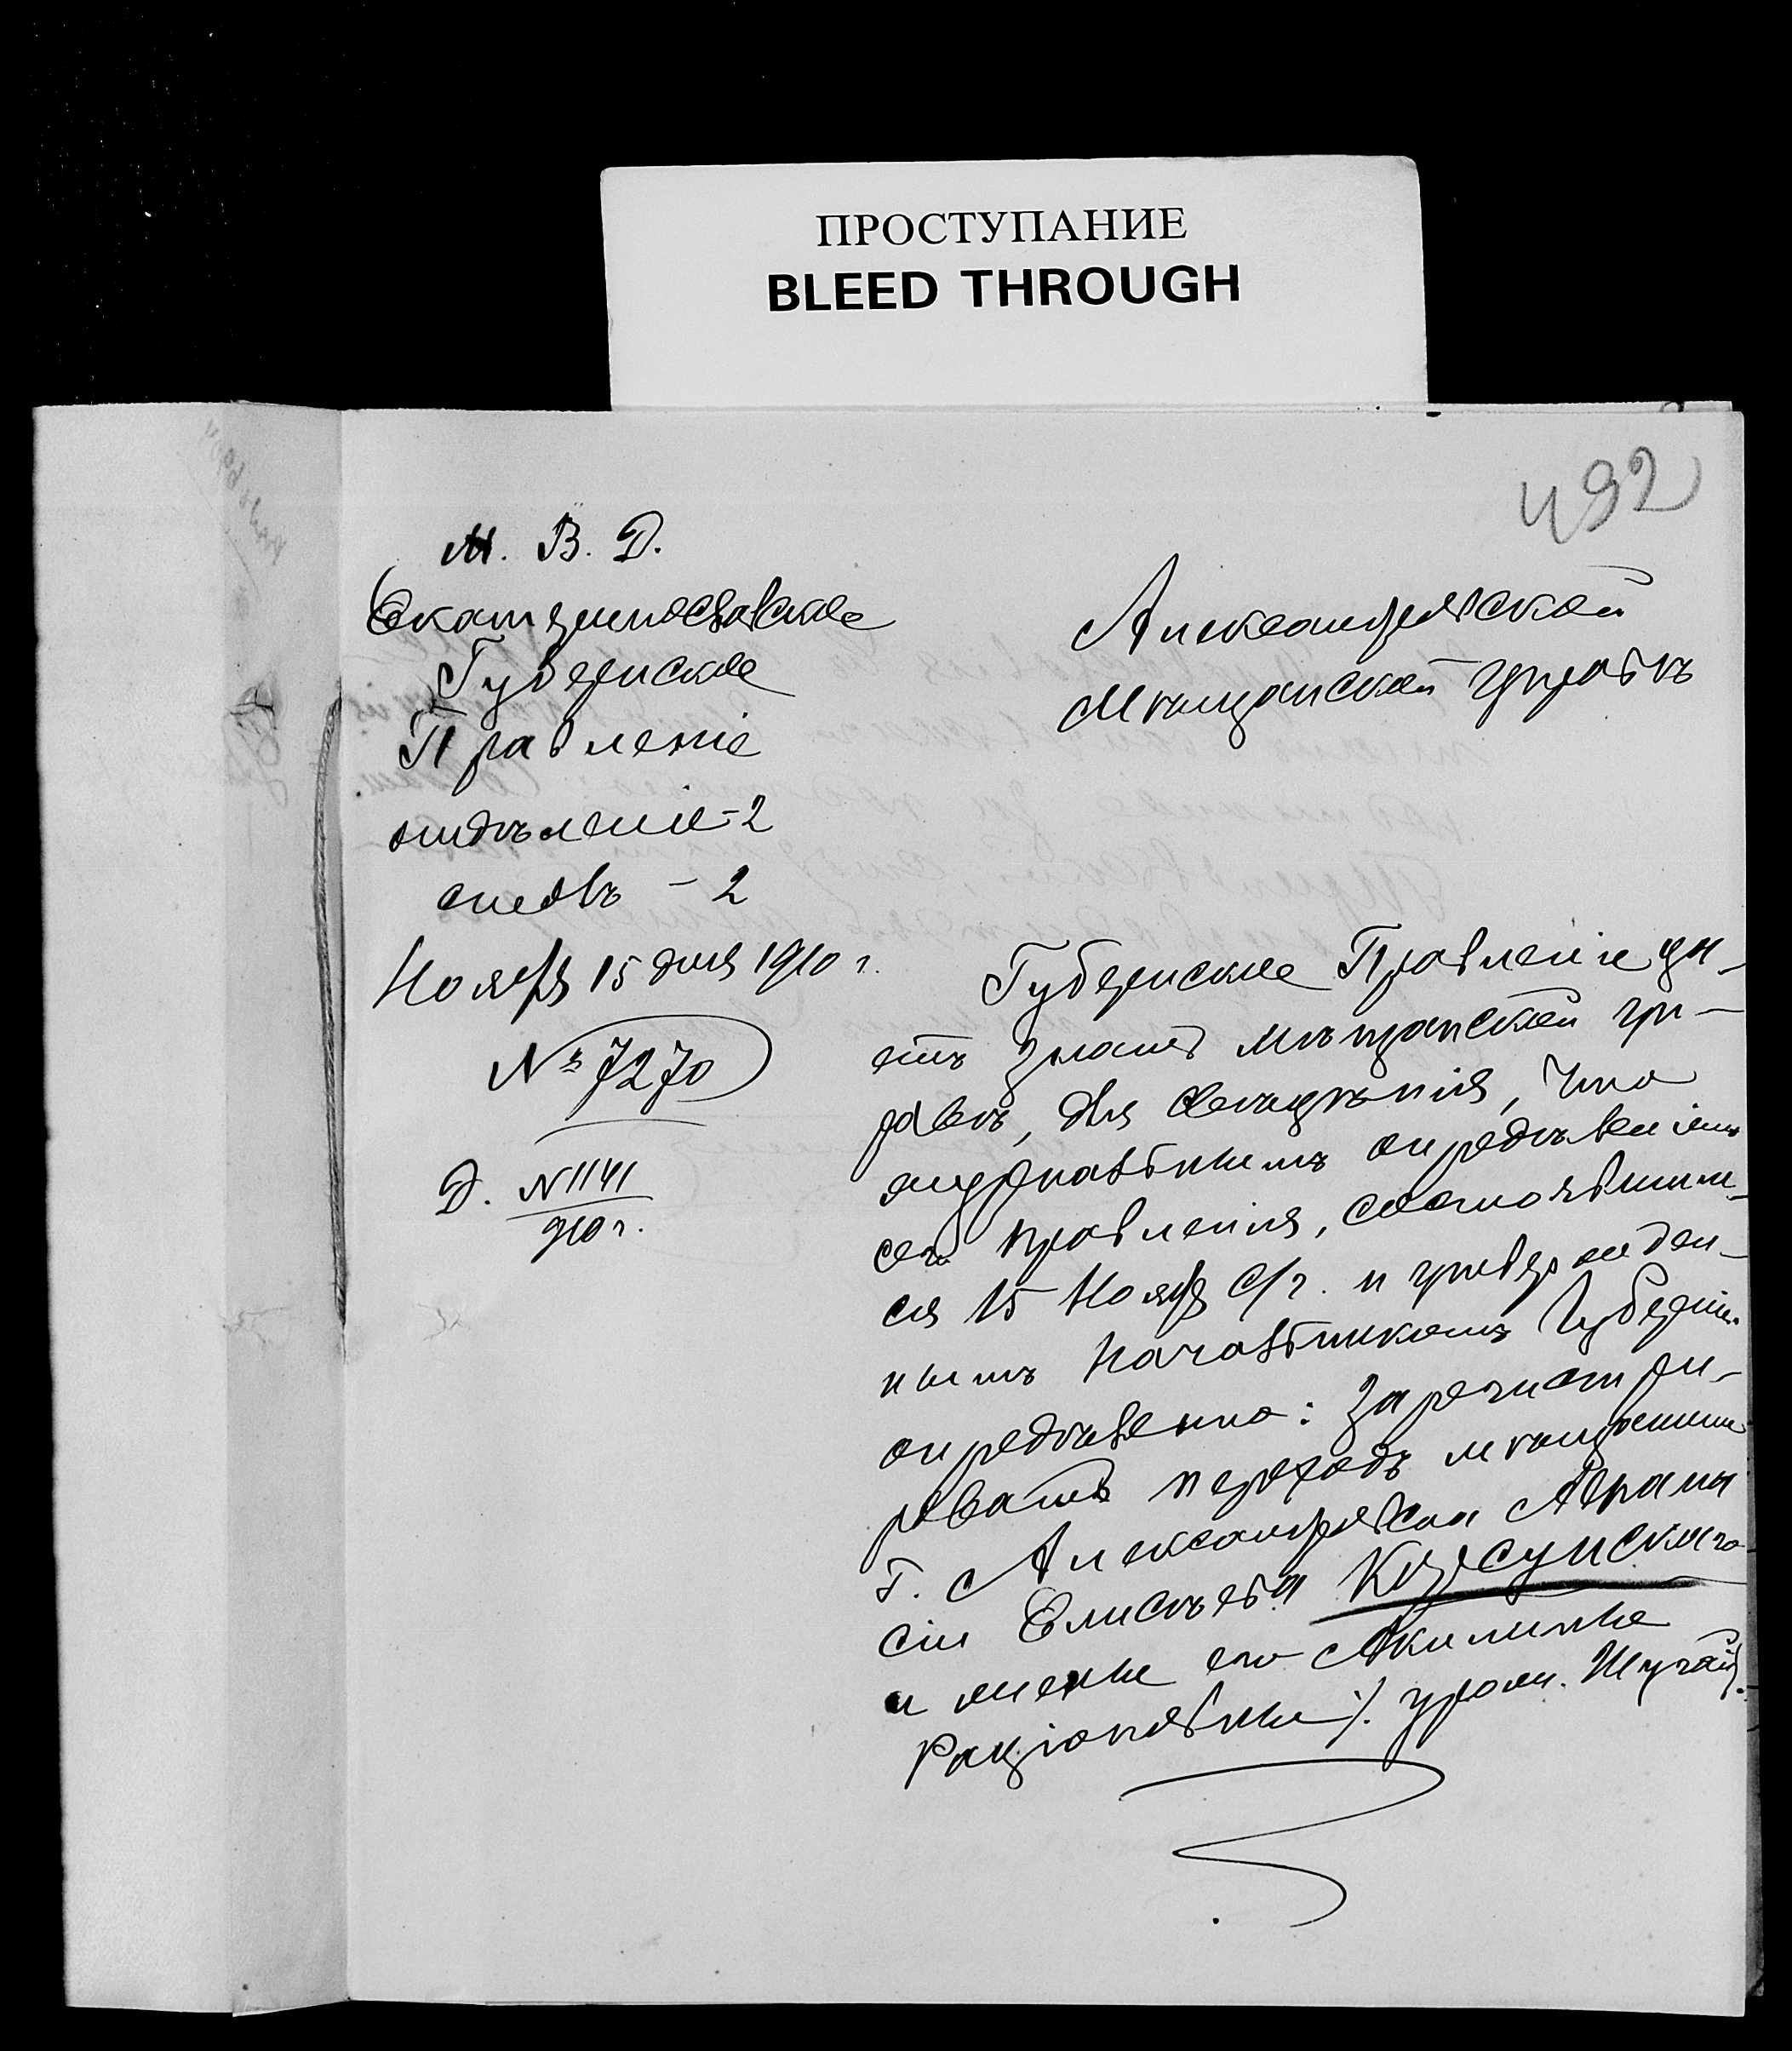 ПРОСТУПАНИЕ
BLEED THROUGH
492
М. В. Д.
Екатеринославское
Губернское
Правленіе
отдѣленіе - 2
столъ - 2
Ноября 15 дня 1910 г.
№ 7270
Д. № 1141
910 г.
Александровской
Мѣщанской Управѣ
Губернское Правленіе да-
етъ знать мѣщанской Уп-
равѣ, для свѣдѣнія, что
журнальнымъ опредѣленіемъ
сего Правленія, состоявшим-
ся 15 Ноября с/г. и утвержден-
нымъ Начальникомъ Губерніи
опредѣлено: зарегистри-
ровать переходъ мѣщанина
г. Александровска
Елисѣева Корсунскаго
и жены его Акилины
урожд.